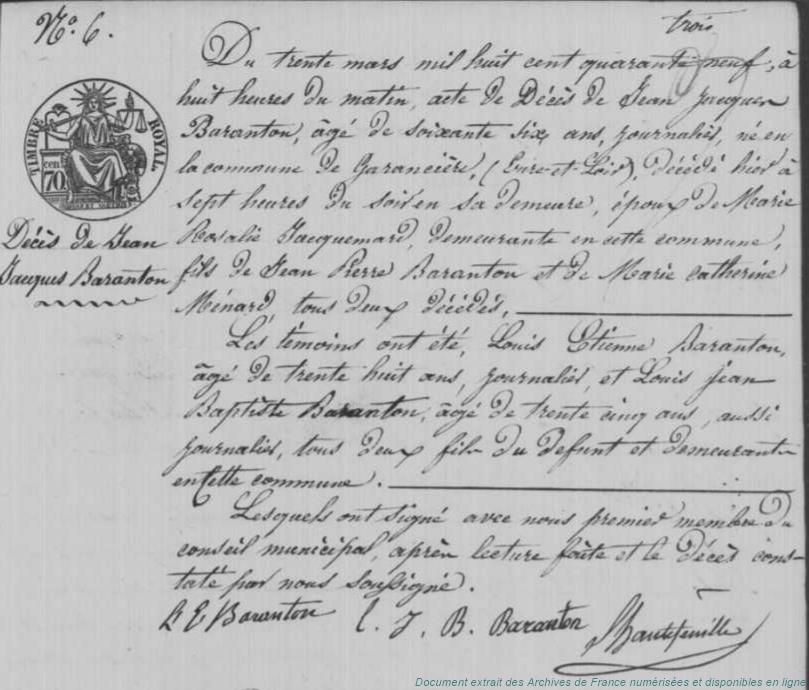 N.o 6.
trois
Du trente mars mil huit cent quarante neuf, à
huit heures du matin, acte de Décès de Jean Jacques
Baranton, âgé de soixante six ans, journalier, né en
la commune de Garancière, (Eure-et-Loir), décédé hier à
sept heures du soir en sa demeure, époux de Marie
Rosalie Jacquemard, demeurante en cette commune,
fils de Jean Pierre Baranton et de Marie Catherine
Ménard, tous deux décédés,
Les témoins ont été, Louis Etienne Baranton,
âgé de trente huit ans, journalier, et Louis Jean
Baptiste Baranton, âgé de trente cinq ans, aussi
journalier, tous deux fils du défunt et demeurants
en cette commune.
Lesquels ont signé avec nous premier membre du
conseil municipal, après lecture faite et le décès cons-
taté par nous soussigné.
L E Baranton L. J. B. Baranton Hautefeuille
TIMBRE ROYAL
cen 70
Décès de Jean
Jacques Baranton
Document extrait des Archives de France numérisées et disponibles en ligne